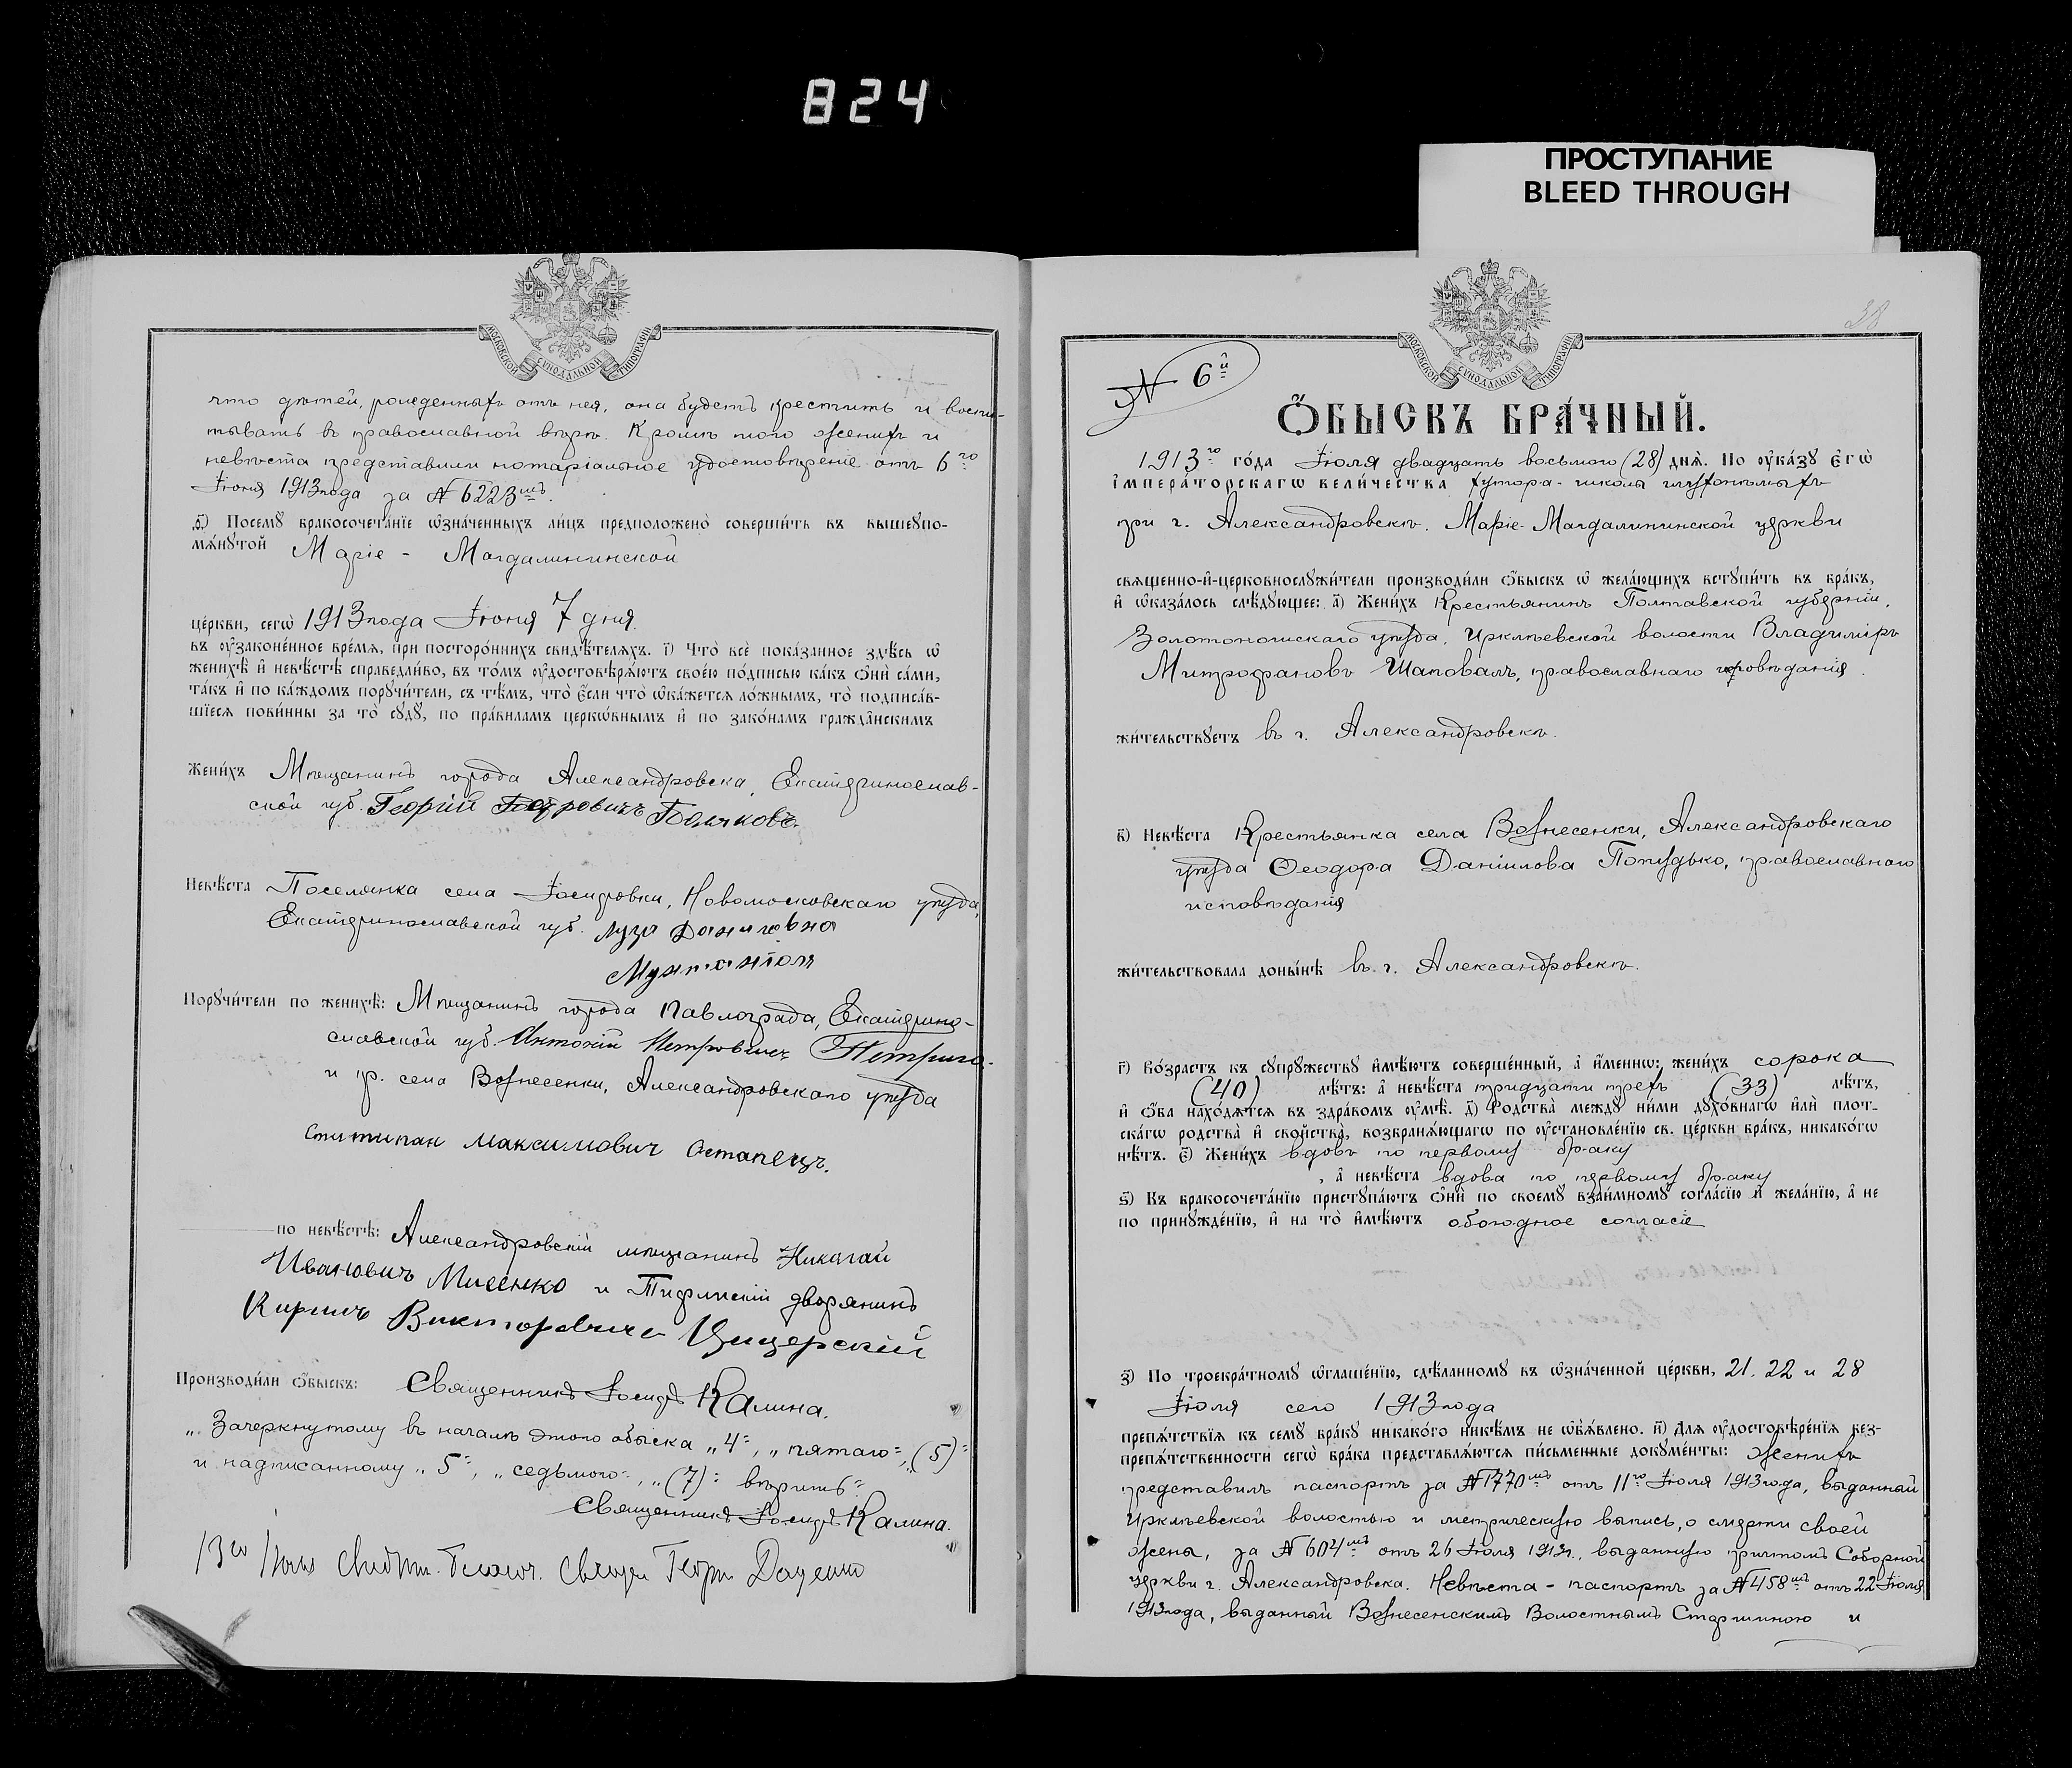 824
ПРОСТУПАНИЕ
BLEED THROUGH
МОСКОВСКОЙ СѴНОДАЛЬНОЙ ТИПОГРАФІИ
что дѣтей, рожденныхъ отъ нея, она будетъ крестить и воспи-
тывать въ православной вѣрѣ. Кромѣ того женихъ и
невѣста представили нотаріальное удостовѣреніе отъ 6го
Іюня 1913 года за № 6223мъ.
д҃) Посемꙋ бракосочета́нїе ѡ҆зна́ченныхъ ли́цъ предположено̀ соверши́ть въ вышеꙋпо-
мѧ́нꙋтой Маріе - Магдалининской
це́ркви, сегѡ̀ 1913 года Іюня 7 дня
въ оу҆зако́ненное вре́мѧ, при посторо́ннихъ свидѣ́телѧхъ. і҃) Что̀ всѐ пока́занное здѣ́сь ѡ҆
женихѣ̀ и҆ невѣ́стѣ справедли́во, въ то́мъ оу҆достовѣрѧ́ютъ свое́ю по́дписью ка́къ ѻ҆нѝ са́ми,
та́къ и҆ по ка́ждомъ порꙋчи́тели, съ тѣ́мъ, что̀ є҆́сли что̀ ѡ҆ка́жетсѧ ло́жнымъ, то̀ подписа́в-
шїесѧ пови́нны за то̀ сꙋдꙋ̀, по пра́виламъ церко́внымъ и҆ по зако́намъ гражда́нскимъ
Жени́хъ Мѣщанинъ города Александровска, Екатеринослав-
ской губ. Георгій Петровичъ Бѣляковъ.
Невѣ́ста Поселянка села Іосиповки, Новомосковскаго уѣзда,
Екатеринославской губ. Луза Даниловна
Порꙋчи́тели по женихѣ̀: Мѣщанинъ города Павлограда, Екатерино-
славской губ. Антоній Петровичъ Петрига
и кр. села Вознесенки, Александровскаго уѣзда
Ститипан Максимович Остапецъ.
по невѣ́стѣ: Александровскій мѣщанинъ Николай
Ивановичъ Мисенко и Тифлискій дворянинъ
Кирилъ Викторовичъ Цицерскій
Производи́ли ѻ҆́быскъ: Священникъ Іосифъ Калина.
„Зачеркнутому въ началѣ этого обыска „4", „пятаго", „(5)"
и надписанному „5", „седьмого", „(7)" вѣрить"
Священникъ Іосифъ Калина.
13го Георг. Доценко
38
МОСКОВСКОЙ СѴНОДАЛЬНОЙ ТИПОГРАФІИ
№ 6й
Ѻ҆́БЫСКЪ БРА́ЧНЫЙ.
1913го го́да Іюля двадцать восьмого (28) днѧ̀. По оу҆ка́зꙋ є҆гѡ̀
і҆мпера́торскагѡ вели́чества хутора-школы глухонѣмыхъ
при г. Александровскѣ. Маріе-Магдалининской церкви
свѧще́нно-и҆-церковнослꙋжи́тели производи́ли ѻ҆́быскъ ѡ҆ жела́ющихъ встꙋпи́ть въ бра́къ,
и҆ ѡ҆каза́лось слѣ́дꙋющее: а҃) Жени́хъ Крестьянинъ Полтавской губерніи,
Золотоношскаго уѣзда, Ирклѣевской волости Владиміръ
Митрофановъ Шаповалъ, православнаго исповѣданія.
жи́тельствꙋетъ въ г. Александровскѣ.
в҃) Невѣ́ста Крестьянка села Вознесенки, Александровскаго
уѣзда Ѳеодора Даніилова Попудько, православнаго
исповѣданія
жи́тельствовала доны́нѣ въ г. Александровскѣ.
г҃) Во́зрастъ къ сꙋпрꙋ́жествꙋ и҆мѣ́ютъ соверше́нный, а҆ и҆́менно: жени́хъ сорока
(40) лѣ́тъ: а҆ невѣ́ста тридцати трехъ (33) лѣ́тъ,
и҆ ѻ҆́ба нахо́дѧтсѧ въ здра́вомъ оу҆мѣ̀. д҃) Родства̀ междꙋ̀ ни́ми дꙋхо́внагѡ и҆лѝ плот-
ска́гѡ родства̀ и҆ свойства̀, возбранѧ́ющагѡ по оу҆становле́нїю св. це́ркви бра́къ, никако́гѡ
нѣ́тъ. є҃) Жени́хъ вдовъ по первому браку
, а҆ невѣ́ста вдова по первому браку
ѕ҃) Къ бракосочета́нїю пристꙋпа́ютъ ѻ҆нѝ по своемꙋ̀ взаи́мномꙋ согла́сїю и҆ жела́нїю, а҆ не
по принꙋжде́нїю, и҆ на то̀ и҆мѣ́ютъ обоюдное согласіе
з҃) По троекра́тномꙋ ѡ҆глаше́нїю, сдѣ́ланномꙋ въ ѡ҆зна́ченной це́ркви, 21. 22 и 28
Іюля сего 1913 года
препѧ́тствїѧ къ семꙋ̀ бра́кꙋ никако́го никѣ́мъ не ѡ҆б̾ѧ́влено. и҃) Длѧ оу҆достовѣре́нїѧ без-
препѧ́тственности сегѡ̀ бра́ка представлѧ́ютсѧ пи́сьменные докꙋме́нты: женихъ
представилъ паспортъ за № 1770мъ отъ 11го Іюля 1913 года, выданный
Ирклѣевской волостью и метрическую выпись, о смерти своей
жены, за № 604мъ отъ 26 Іюля 1913г., выданную причтомъ Соборной
церкви г. Александровска. Невѣста - паспортъ за № 458мъ отъ 22 Іюля
1913 года, выданный Вознесенскимъ Волостнымъ Старшиною и